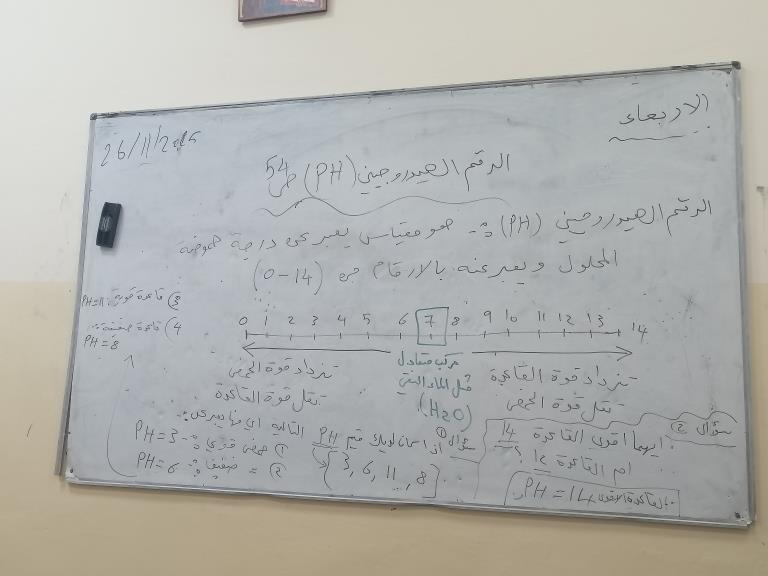 الاربعاء
26/11/2025
الرقم الهيدروجيني (PH) ص 54
الرقم الهيدروجيني (PH) :- هو مقياس يعبر عن درجة حموضة
المحلول ويعبر عنه بالارقام من (0-14)
0 1 2 3 4 5 6 7 8 9 10 11 12 13 14
تزداد قوة القاعدة
تقل قوة الحمض
مركب متعادل
مثل الماء النقي
(H2O)
تزداد قوة الحمض
تقل قوة القاعدة
سؤال 1 اذا كان لديك قيم PH التالية اي منها يعبر عن:
{3, 6, 11, 8}
1) حمض قوي :- PH=3
2) = ضعيف :- PH=6
3) قاعدة قوية :- PH=11
4) قاعدة ضعيفة :-
PH=8
سؤال 2
ايهما اقوى القاعدة 14
ام القاعدة
القاعدة الاقوى PH=14